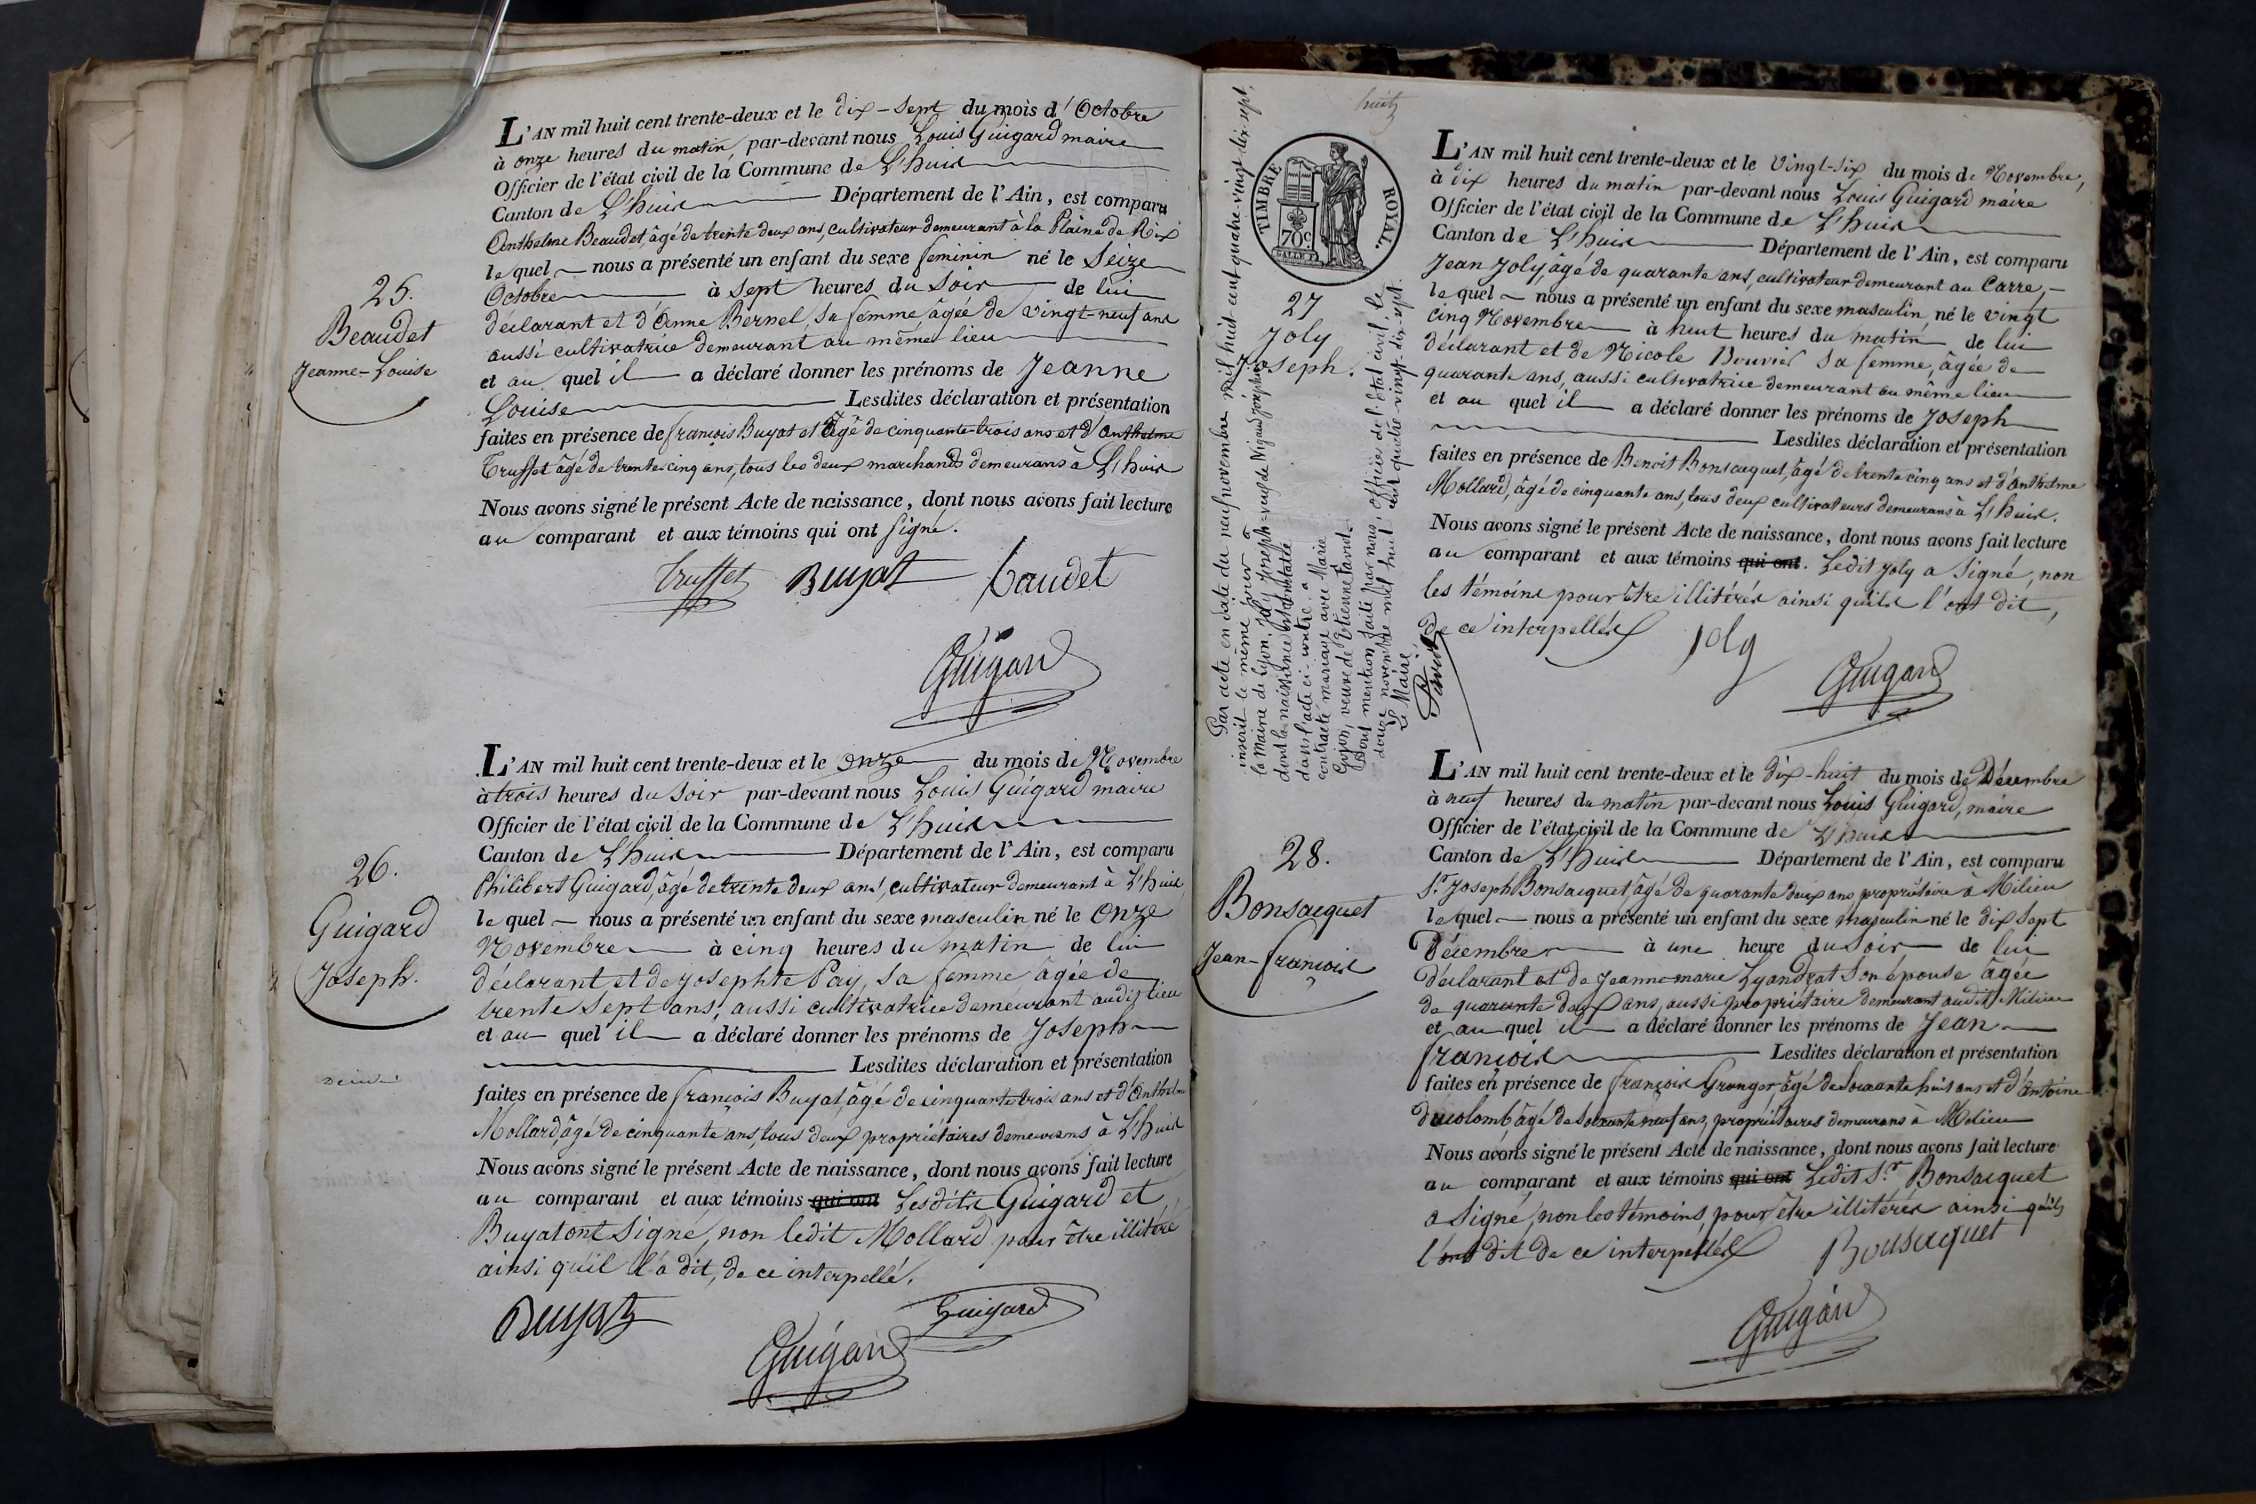 L'AN mil huit cent trente-deux et le dix-sept du mois d'Octobre
à onze heures du matin, par-devant nous Louis Guigard maire
Officier de l'état civil de la Commune de L'huis
Canton de L'huis Département de l'Ain, est comparu
Anthelme Beaudet, âgé de trente deux ans, cultivateur demeurant à la Plaine de Rix
le quel nous a présenté un enfant du sexe feminin né le Seize
Octobre à Sept heures du Soir de lui
déclarant et d'Anne Bernel, sa femme âgée de vingt-neuf ans
aussi cultivatrice demeurant au même lieu
et au quel il a déclaré donner les prénoms de Jeanne
Louise Lesdites déclaration et présentation
faites en présence de françois Buyat et Agé de cinquante trois ans et d'Anthelme
Truffet âgé de trente cinq ans, tous les deux marchands demeurans à L'huis
Nous avons signé le présent Acte de naissance, dont nous avons fait lecture
au comparant et aux témoins qui ont signé.
Truffet Buyat baudet
Guigard
25.
Beaudet
Jeanne-Louise
L'AN mil huit cent trente-deux et le onze du mois de Novembre
à trois heures du Soir par-devant nous Louis Guigard maire
Officier de l'état civil de la Commune de L'huis
Canton de L'huis Département de l'Ain, est comparu
Philibert Guigard, âgé de trente deux ans, cultivateur demeurant à L'huis
le quel nous a présenté un enfant du sexe masculin né le Onze
Novembre à cinq heures du matin de lui
déclarant et de Josephte Pay, sa femme âgée de
trente sept ans, aussi cultivatrice demeurant audit lieu
et au quel il a déclaré donner les prénoms de Joseph
Lesdites déclaration et présentation
faites en présence de françois Buyat, âgé de cinquante trois ans et d'Anthelme
Mollard, âgé de cinquante ans, tous deux propriétaires demeurans à L'huis
Nous avons signé le présent Acte de naissance, dont nous avons fait lecture
au comparant et aux témoins qui ont Lesdits Guigard et
Buyat ont Signé, non ledit Mollard pour être illitéré
ainsi qu'il l'a dit, de ce interpellé.
Buyat Guigard
Guigard
26.
Guigard
Joseph.
huit
TIMBRE ROYAL.
70c
L'AN mil huit cent trente-deux et le Vingt-six du mois de Novembre,
à dix heures du matin par-devant nous Louis Guigard maire
Officier de l'état civil de la Commune de L'huis
Canton de L'huis Département de l'Ain, est comparu
Jean Joly, âgé de quarante ans, cultivateur demeurant au Carre,
le quel nous a présenté un enfant du sexe masculin né le vingt
cinq Novembre à huit heures du matin de lui
déclarant et de Nicole Bouvier sa femme, âgée de
quarante ans, aussi cultivatrice demeurant au même lieu
et au quel il a déclaré donner les prénoms de Joseph
Lesdites déclaration et présentation
faites en présence de Benoit Bonsacquet, âgé de trente cinq ans et d'Anthelme
Mollard, âgé de cinquante ans, tous deux cultivateurs demeurans à L'huis.
Nous avons signé le présent Acte de naissance, dont nous avons fait lecture
au comparant et aux témoins qui ont. Ledit Joly a Signé, non
les témoins pour être illitérés ainsi qu'ils l'ont dit,
de ce interpellés
Joly
Guigard
27
Joly
Joseph.
Par acte en date du neuf novembre mil huit-cent quatre-vingt-dix-sept,
inscrit le même jour à
la Mairie de Lyon, Joly Joseph veuf de Josephte
dont la naissance est constatée
dans l'acte ci-contre, a
contracté mariage avec Marie
Goyon, veuve de Etienne David.
Dont mention faite par nous, officier de l'état civil, le
douze novembre mil huit cent quatre-vingt-dix-sept.
Le Maire
L'AN mil huit cent trente-deux et le dix-huit du mois de Décembre
à neuf heures du matin par-devant nous Louis Guigard, maire
Officier de l'état civil de la Commune de L'huis
Canton de L'huis Département de l'Ain, est comparu
Sr. Joseph Bonsacquet, âgé de quarante deux ans propriétaire à Milieu
le quel nous a présenté un enfant du sexe masculin né le dix Sept
Décembre à une heure du Soir de lui
déclarant et de Jeanne-marie Lyandrat Son épouse âgée
de quarante deux ans, aussi propriétaire demeurant audit Milieu
et au quel il a déclaré donner les prénoms de Jean
françois Lesdites déclaration et présentation
faites en présence de françois Granger, âgé de Soixante huit ans et d'Antoine
Ducolomb âgé de Soixante neuf ans, propriétaires demeurans à Milieu
Nous avons signé le présent Acte de naissance, dont nous avons fait lecture
au comparant et aux témoins qui ont Ledit Sr. Bonsacquet
a Signé, non les témoins, pour être illitérés ainsi qu'ils
l'ont dit de ce interpellés Bonsacquet
Guigard
28.
Bonsacquet
Jean-françois